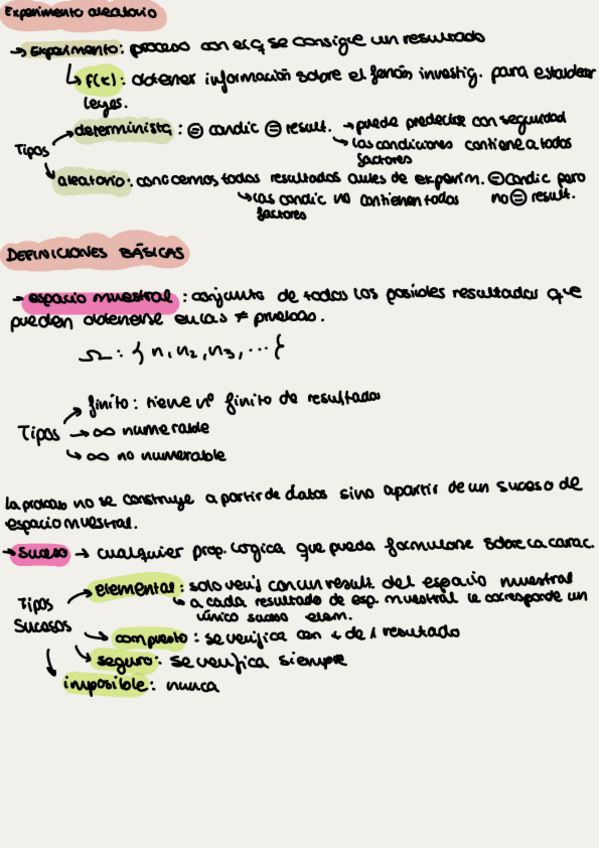 Experimento aleatorio
→ Experimento: proceso con el q se consigue un resultado
↳ f(x): obtener información sobre el fenóm investig. para establecer
leyes.
Tipos
determinista: = condic = result. → puede predecirse con seguridad
↳ las condiciones contiene a todos
factores
aleatorio: conocemos todos resultados antes de experim. = condic pero
no = result.
↳ las condic no contienen todos
factores
DEFINICIONES BÁSICAS
→ espacio muestral: conjunto de todos los posibles resultados que
pueden obtenerse en las ≠ pruebas.
Ω: { n, n2, n3, ... }
Tipos
finito: tiene nº finito de resultados
→ ∞ numerable
↳ ∞ no numerable
no se construye a partir de datos sino apartir de un suceso de
espacio muestral.
→ Suceso → cualquier prop. logica que pueda formularse sobre la carac.
Tipos
Sucesos
elemental: solo verif con un result. del espacio muestral
↳ a cada resultado de esp. muestral le corresponde un
único suceso elem.
compuesto: se verifica con + de 1 resultado
seguro: se verifica siempre
imposible: nunca